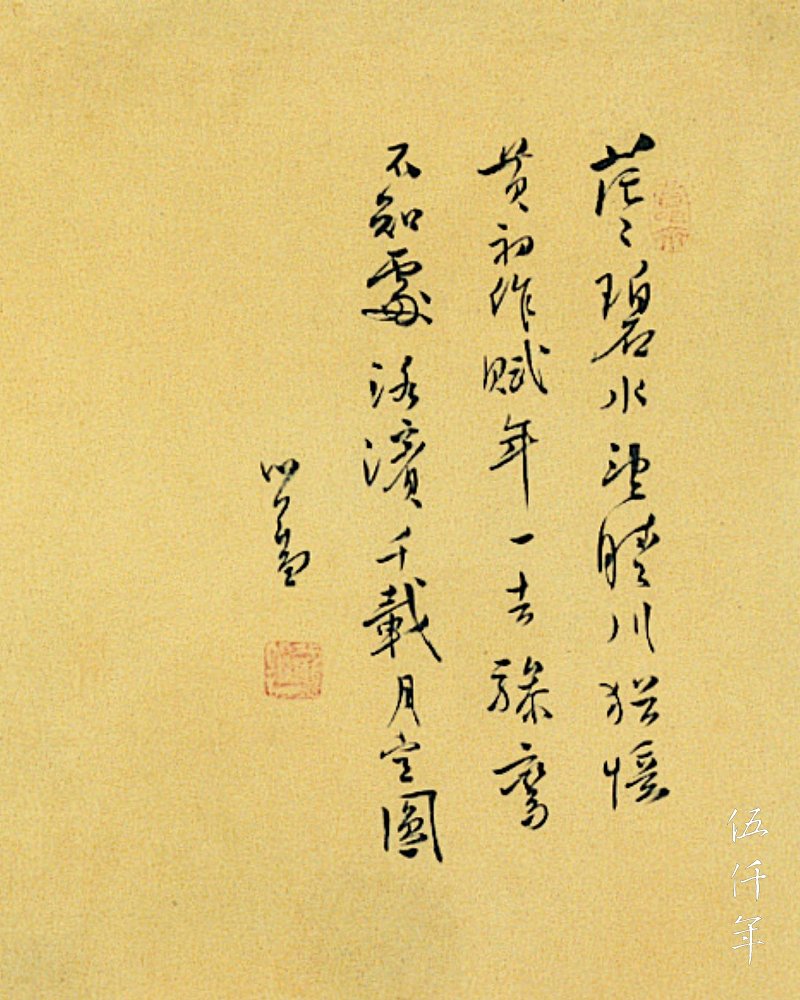 茫〻碧水望晴川猶憶
黄初作賦年一去驂鸞
不知處洛濱千載月空圓
心畬
伍仟年